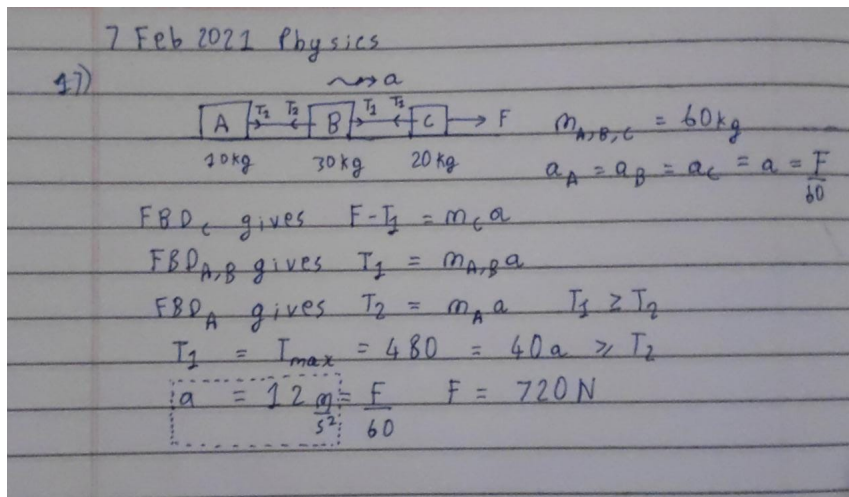 7 Feb 2021 Physics
17)
a
T2 T2 T1 T1
A B C F
10kg 30kg 20kg
m A,B,C = 60kg
a_A = a_B = a_C = a = F/60
FBD_C gives F-T1 = m_C a
FBD_A,B gives T1 = m_A,B a
FBD_A gives T2 = m_A a T1 ≥ T2
T1 = Tmax = 480 = 40a ≥ T2
a = 12 m/s² = F/60 F = 720N